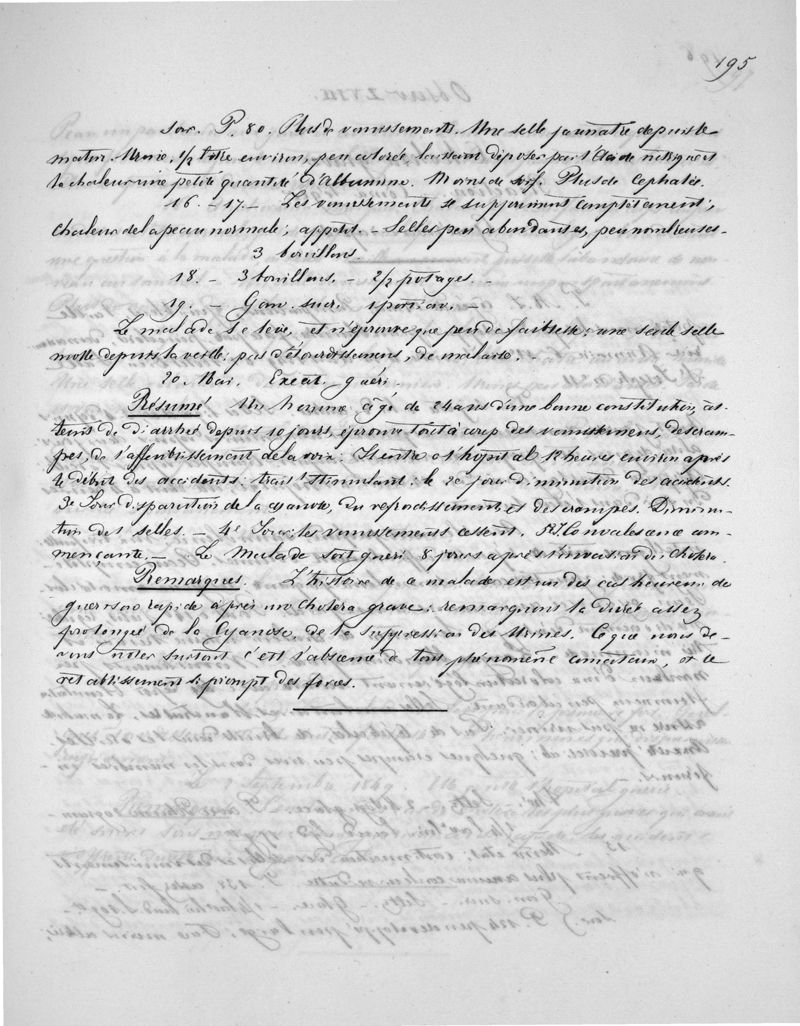 195
Soir. P. 80. Plus de vomissements. Une selle jaunâtre depuis le
matin. Urine, 1/2 litre environ, peu colorée, laissant déposer par l'Acide nitrique et
la chaleur une petite quantité d'Albumine. Moins de soif. Plus de Cephalée.
16. - 17. - Les vomissements se suppriment complètement;
Chaleur de la peau normale; appétit. - Selles peu abondantes, peu nombreuses -
3 bouillons.
18. - 3 bouillons. - 2/2 potages. -
19. - Gom. sucr. 1 portion. -
Le malade se lève, et n'éprouve que peu de faiblesse; une seule selle
molle depuis la veille; pas d'étourdissement, de malaise. -
20. Mai. Exeat. guéri.
Résumé Un homme âgé de 24 ans d'une bonne constitution, at-
teint de diarrhée depuis 10 jours, éprouve tout à coup des vomissemens, des cram-
pes, de l'affaiblissement de la voix; Il entre à l'hôpital 12 heures environ après
le début des accidents; trait! Stimulant; le 2e jour diminution des accidents.
3e Jour disparution de la cyanose, du refroidissement et des crampes. Diminu-
tion des selles. - 4e Jour; les vomissements cessent. 5e J. Convalescence com-
mençante. - Le Malade sort guéri 8 jours après l'invasion du Choléra.
Remarques. L'histoire de ce malade est un des cas heureux de
guérison rapide après un Choléra grave; remarquons la durée assez
prolongée de la Cyanose, de la Suppression des Urines. Ce que nous de-
vons noter surtout c'est l'absence de tous phénomène comateux, et le
rétablissement si prompt des forces.